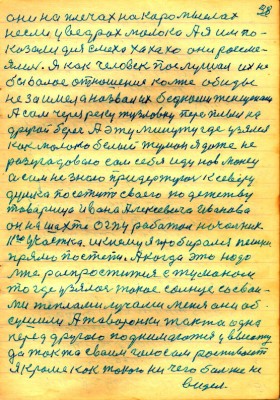 98
они на плечах на каромыслах
несли у ведрах молоко А я им по-
казали для смеха хахахо они рассме-
ялись. Я как человек послушал их не
бывалое отношения ко мне обиды
не заимел а назвал их бедною женщиною
А сам через реку тузловку переплыл на
другой берег А эту минуту где узялся
как молоко белый туман я даже не
розугадовою сам себя иду на
а сам не знаю придержуюсь к северу
думка посетить своего по детству
товарища Ивана Алексеевича Иванова
он на шахте ОГПУ работал начолник
11го участка. и к нему я пробирался пешим
прямо постели. А когда это надо
мне роспростится с туманом
то где узялося такое солнце со сваи-
ми теплами лучами меня они об
сушили А жаворонки так та одна
перед другого поднимаются у высоту
да так та своим голосам роспивают
Я кроме как такого ни чего больше не
видел.